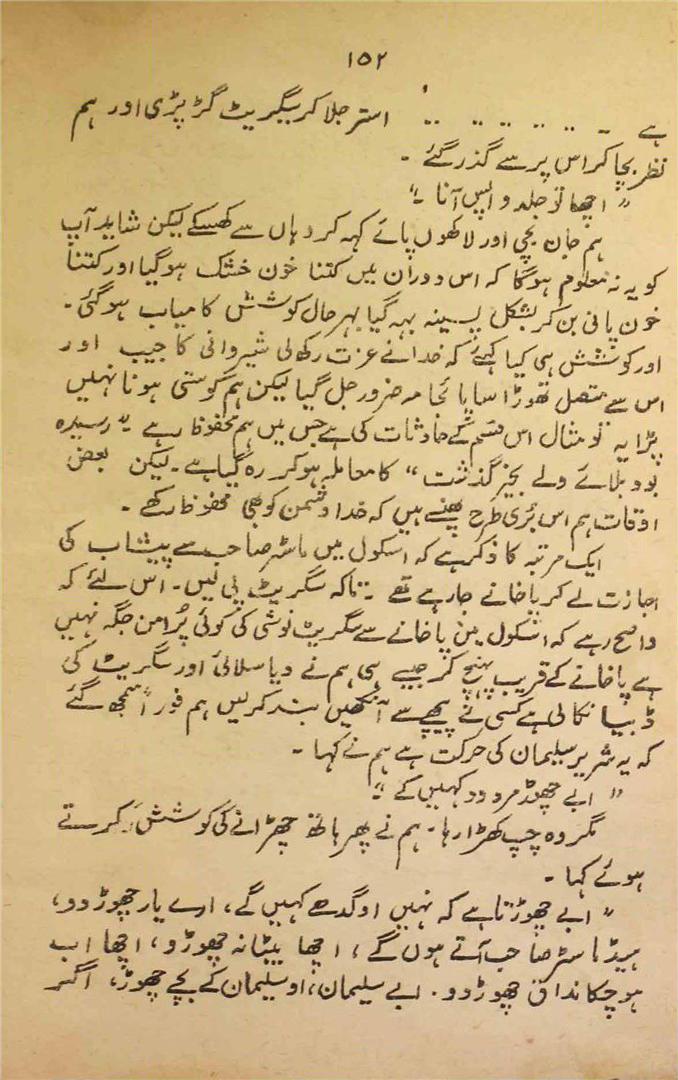 ۱۵۲
ہے ۔ .. .. .. .. .. استر جلا کر سگریٹ گر پڑی اور ہم
نظر بچا کر اس پر سے گذر گئے ۔
" اچھا تو جلد واپس آنا ۔"
ہم جان بچی اور لاکھوں پائے کہہ کر وہاں سے کھسکے لیکن شاید آپ
کو یہ نہ معلوم ہوگا کہ اس دوران میں کتنا خون خشک ہو گیا اور کتنا
خون پانی بن کر بشکل پسینہ بہہ گیا بہر حال کوشش کامیاب ہو گئی ۔
اور کوشش ہی کیا کہئے کہ خدا نے عزت رکھ لی شیروانی کا جیب اور
اس سے متصل تھوڑا سا پائجامہ ضرور جل گیا لیکن ہم کو ستی ہونا نہیں
پڑا یہ تو مثال اس قسم کے حادثات کی ہے جس میں ہم محفوظ رہے ۔" رسیدہ
بود بلائے ولے بخیر گذشت " کا معاملہ ہو کر رہ گیا ہے ۔ لیکن بعض
اوقات ہم اس بُری طرح پھنسے ہیں کہ خدا دشمن کو بھی محفوظ رکھے ۔
ایک مرتبہ کا ذکر ہے کہ اسکول میں ماسٹر صاحب سے پیشاب کی
اجازت لے کر پاخانے جا رہے تھے ۔ تاکہ سگریٹ پی لیں ۔ اس لئے کہ
واضح رہے کہ اسکول میں پاخانے سے سگریٹ نوشی کی کوئی پُرامن جگہ نہیں
ہے پاخانے کے قریب پہنچ کر جیسے ہی ہم نے دیا سلائی اور سگریٹ کی
ڈبیا نکالی ہے کسی نے پیچھے سے آنکھیں بند کر لیں ہم فوراً سمجھ گئے
کہ یہ شریر سلیمان کی حرکت ہے ہم نے کہا ۔
" ابے چھوڑ مردود کہیں کے ۔"
مگر وہ چپ کھڑا رہا ۔ ہم نے پھر ہاتھ چھڑانے کی کوشش کرتے
ہوئے کہا ۔
" ابے چھوڑتا ہے کہ نہیں او گدھے کہیں گے ، ارے یار چھوڑ دو ،
ہیڈ ماسٹر صاحب آتے ہوں گے ، اچھا بیٹا نہ چھوڑو ، اچھا اب
ہو چکا مذاق چھوڑ دو ۔ ابے سلیمان ، او سلیمان کے بچے چھوڑ ، اگر